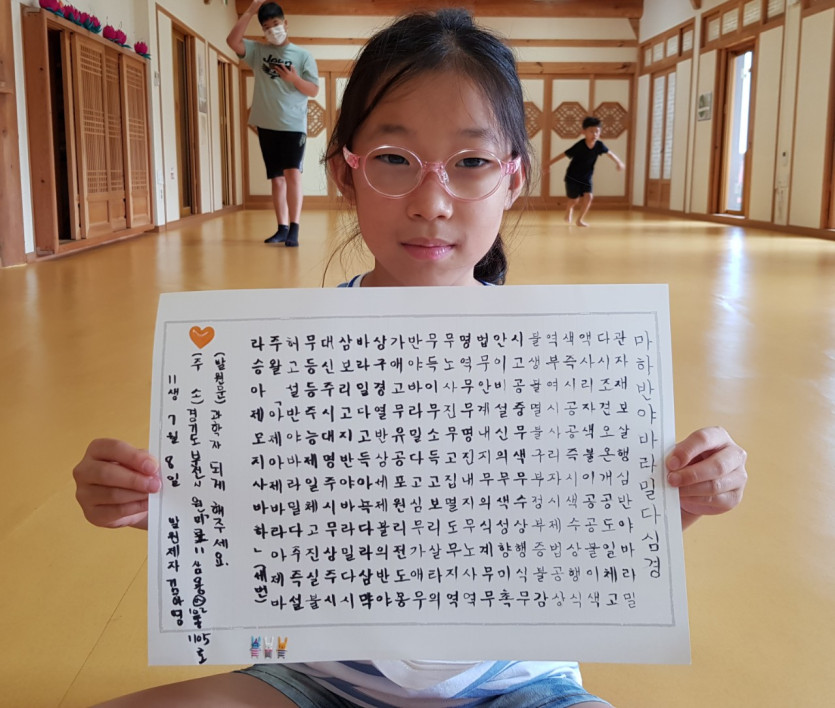 마하반야바라밀다심경
관자재보살행심반야바라밀
다시조견오온개공도일체고
액사리자색불이공공불이색
색즉시공공즉시색수상행식
역부여시사리자시제법공상
불생불멸불구부정부증불감
시고공중무색무수상행식무
안이비설신의무색성향미촉
법무안계내지무의식계무무
명역무무명진내지무노사역
무노사진무고집멸도무지역
무득이무소득고보리살타의
반야바라밀다고심무가애무
가애고무유공포원리전도몽
상구경열반삼세제불의반야
바라밀다고득아뇩다라삼막
삼보리고지반야바라밀다시
대신주시대명주시무상주시
무등등주능제일체고진실불
허고설반야바라밀다주즉설
주왈 아제아제바라아제바
라승아제모지사바하 (세번)
(발원문) 과학자 되게 해주세요.
(주 소) 경기도 부천 1105호
11생 7월 8일 발원제자 김아영